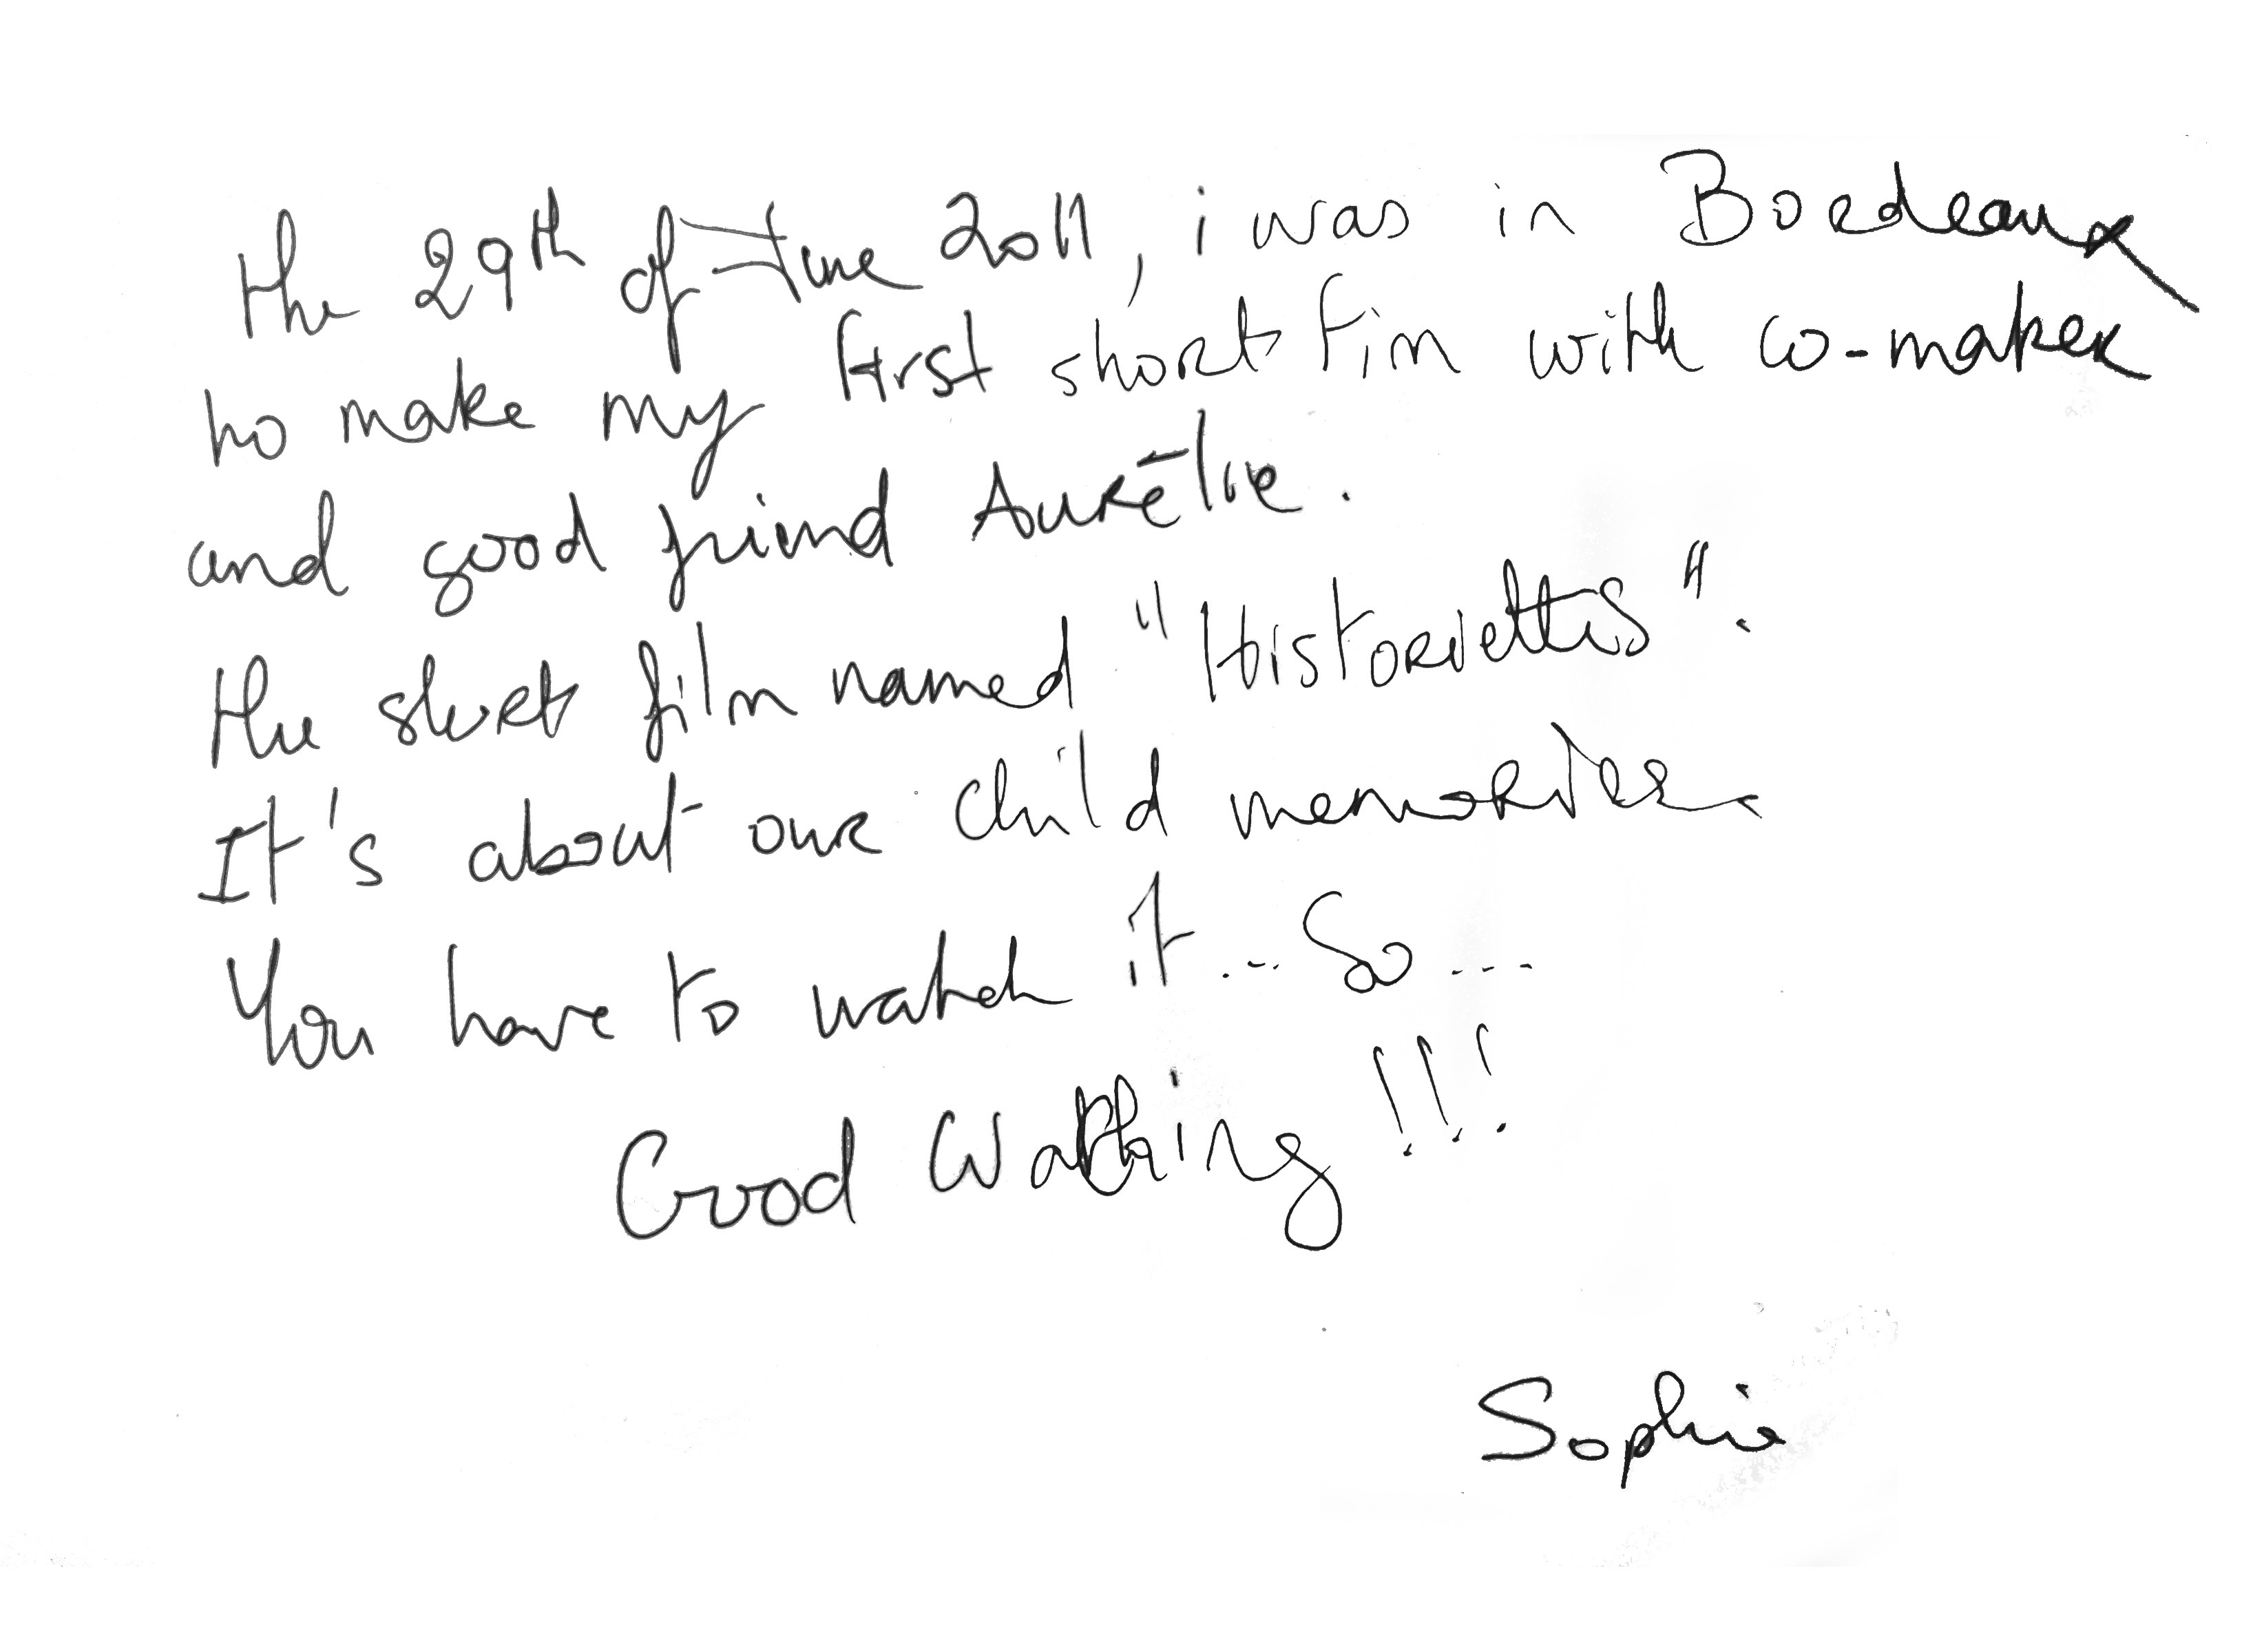 the 29th of June 2011, i was in Bordeaux
to make my first short fim with co-maker
and good friend Aurélie.
the short film named "Historiettes".
It's about our child memories
You have to watch it... So ...
Good Watching !!!
Sophie